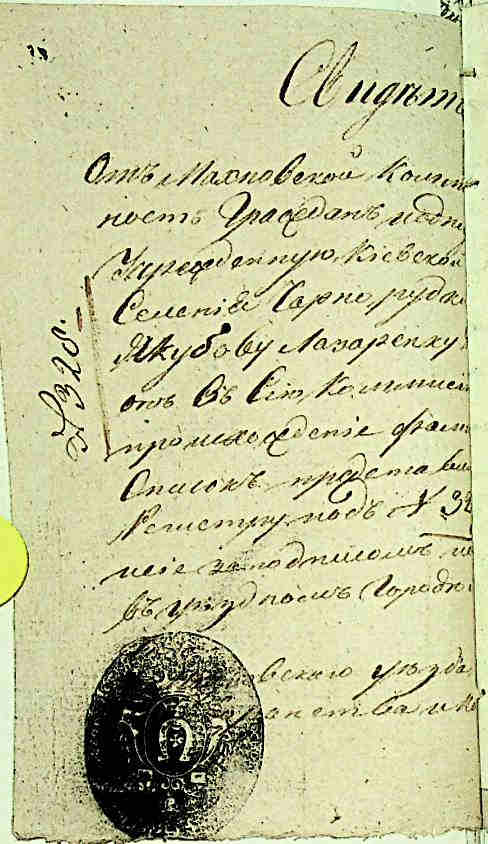 Свидѣт
Отъ Махновской Комми
ность Граждан и одн
Учрежденную, Кіевско
Селенія Чорно рудк
Якубову Лазаренку
онъ Въ Сію Коммисі
происхожденіе фам
Списокъ представи
Регистру подъ N 32
N 328.
ніе за подписомъ
въ уѣздномъ Городѣ
вскаго уѣзда